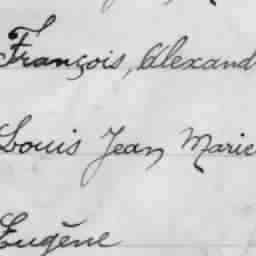 François, Alexand
Louis Jean Marie
Eugène